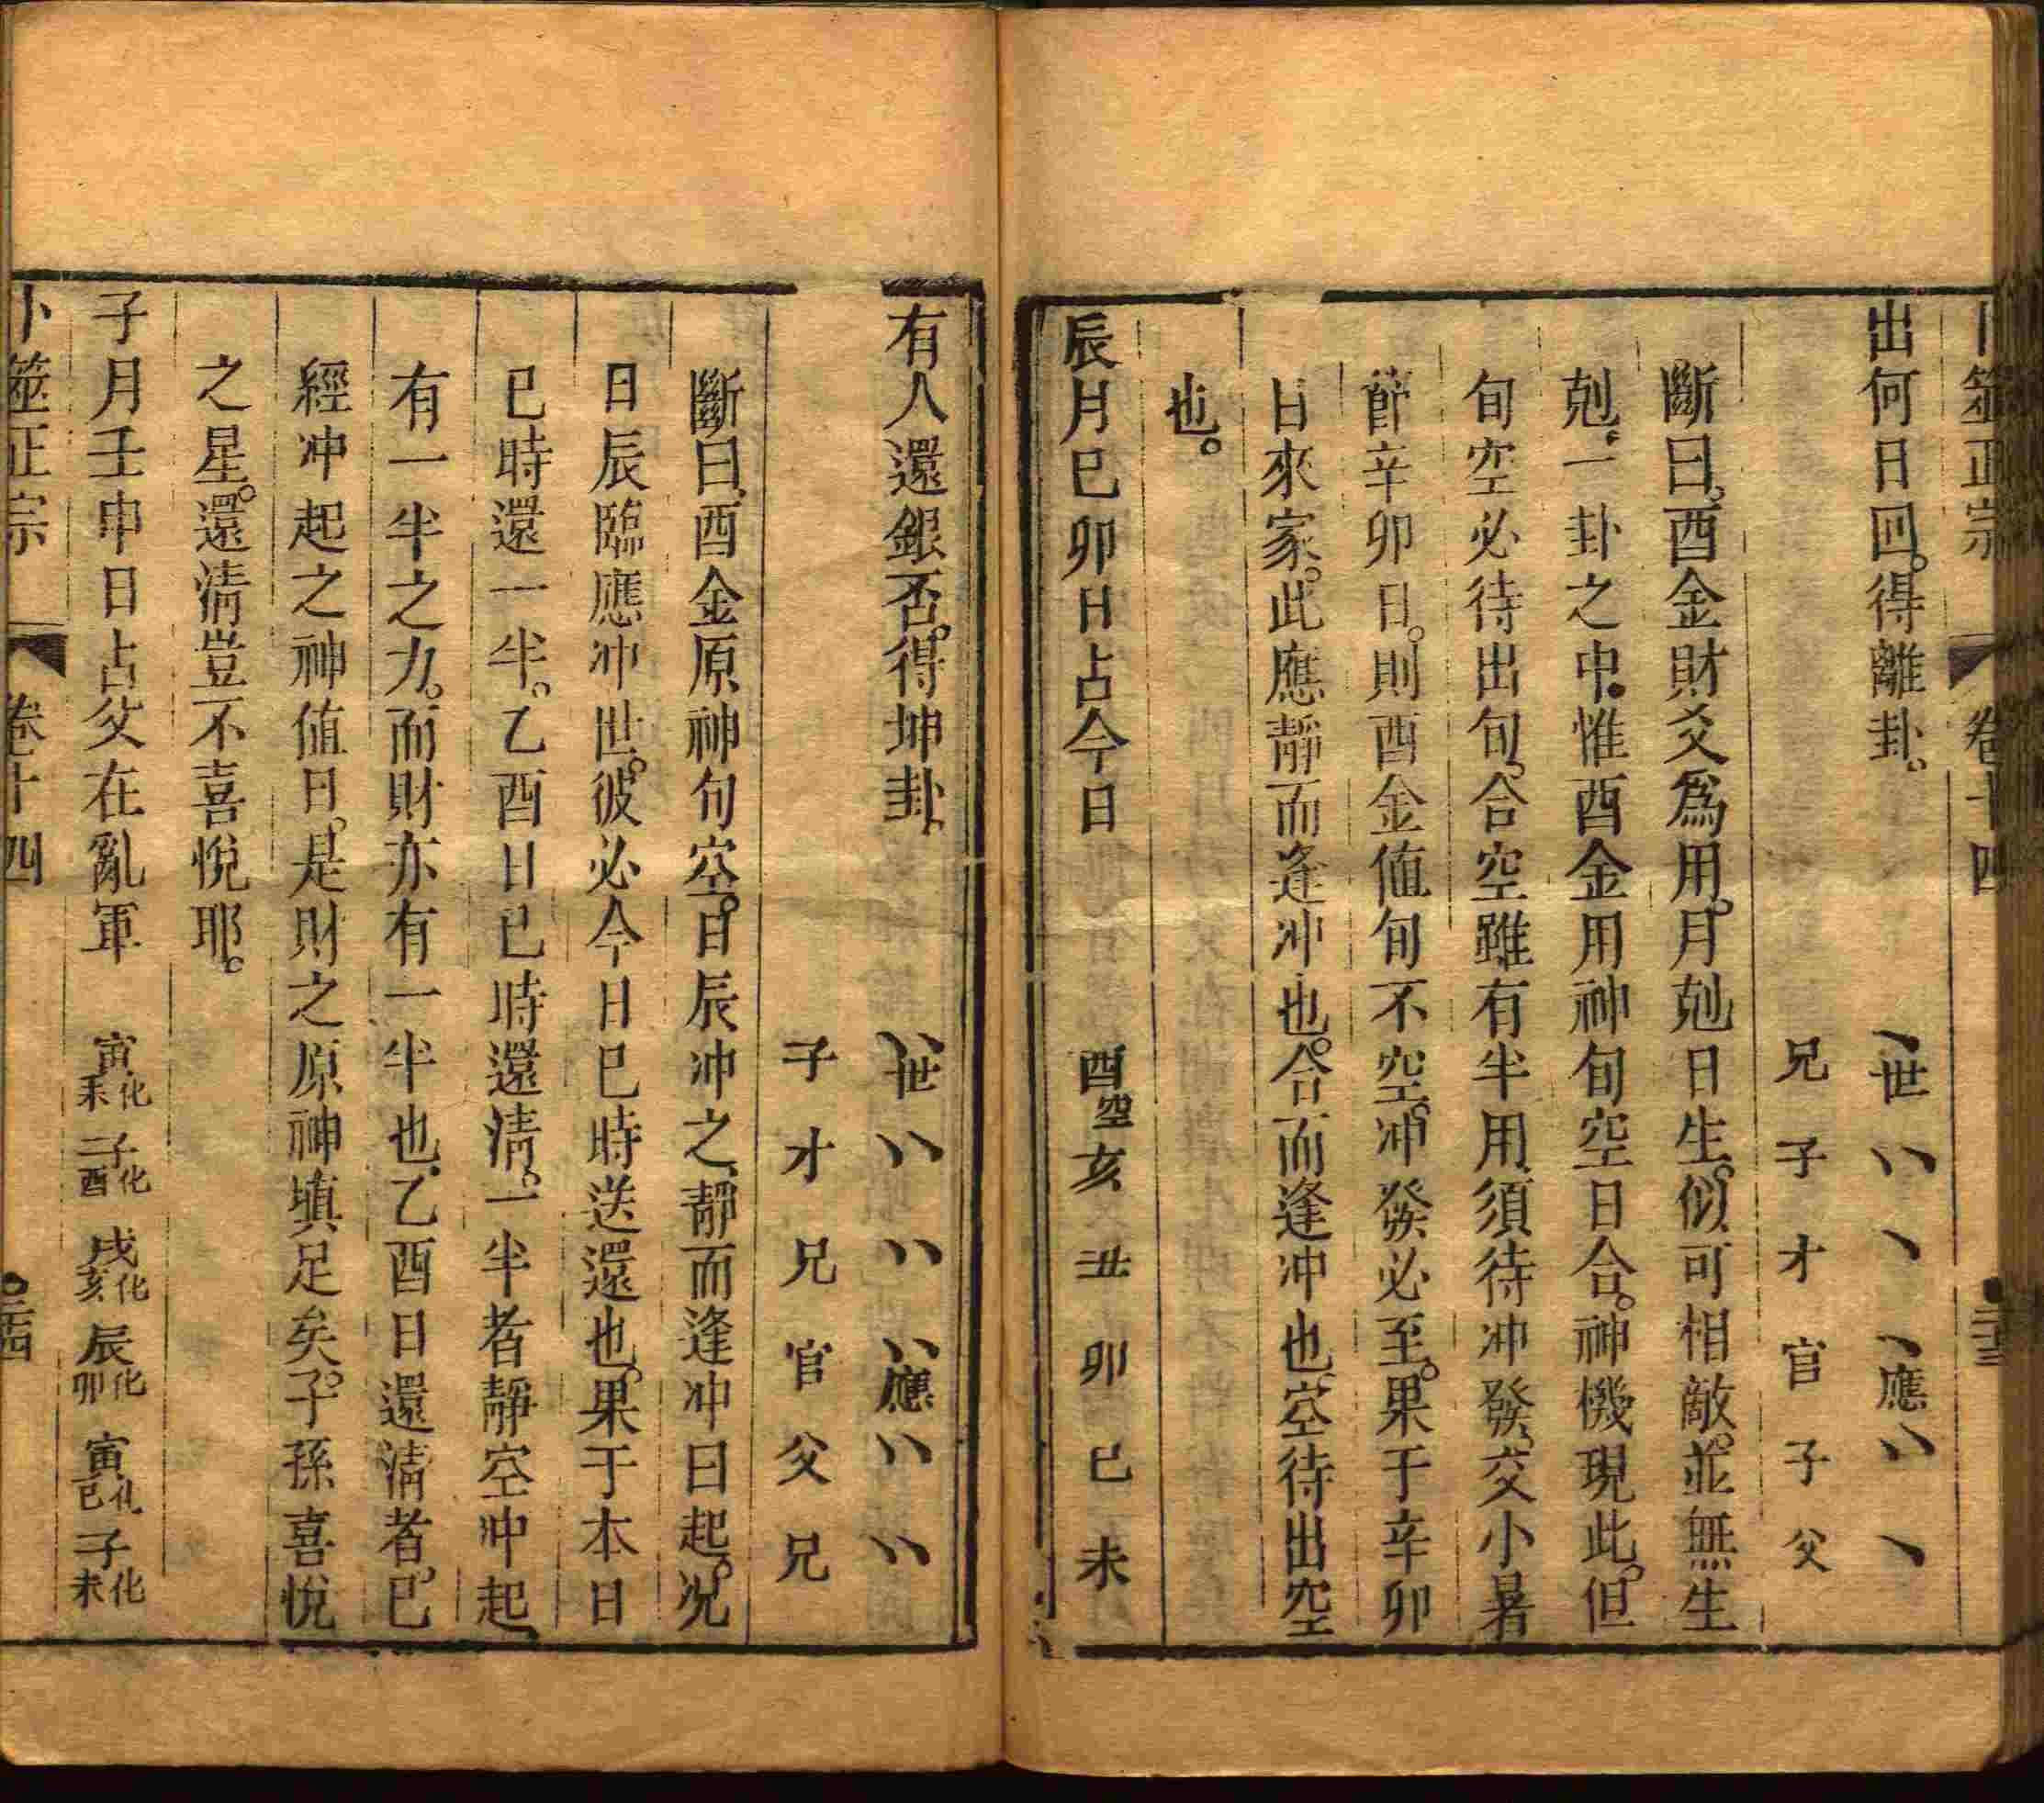 卜筮正宗 卷十四 二十三
出何日回。得離卦。 、世 八 、 、應 八 、
兄 子 才 官 子 父
斷曰。酉金財爻爲用。月剋日生。似可相敵。並無生
剋、一卦之中。惟酉金用神旬空日合。神機現此。但
旬空必待出旬。合空雖有半用、須待冲發、交小暑
節辛卯日。則酉金值旬不空。冲發必至。果于辛卯
日來家。此應靜而逢冲也。合而逢冲也、空待出空
也。
辰月巳卯日占今日 酉空 亥 丑 卯 巳 未
有人還銀否。得坤卦、 八世 八 八 八應 八 八
子 才 兄 官 父 兄
斷曰、酉金原神旬空。日辰冲之、靜而逢冲曰起。况
日辰臨應冲世。彼必今日巳時送還也。果于本日
巳時還一半。乙酉日巳時還清。一半者靜空冲起、
有一半之力。而財亦有一半也、乙酉日還清者、已
經冲起之神值日。是財之原神填足矣。子孫喜悅
之星。還清豈不喜悅耶。
子月壬申日占父在亂軍 寅化未 子化酉 戌化亥 辰化卯 寅化巳 子化未
卜筮正宗 卷十四 二十四